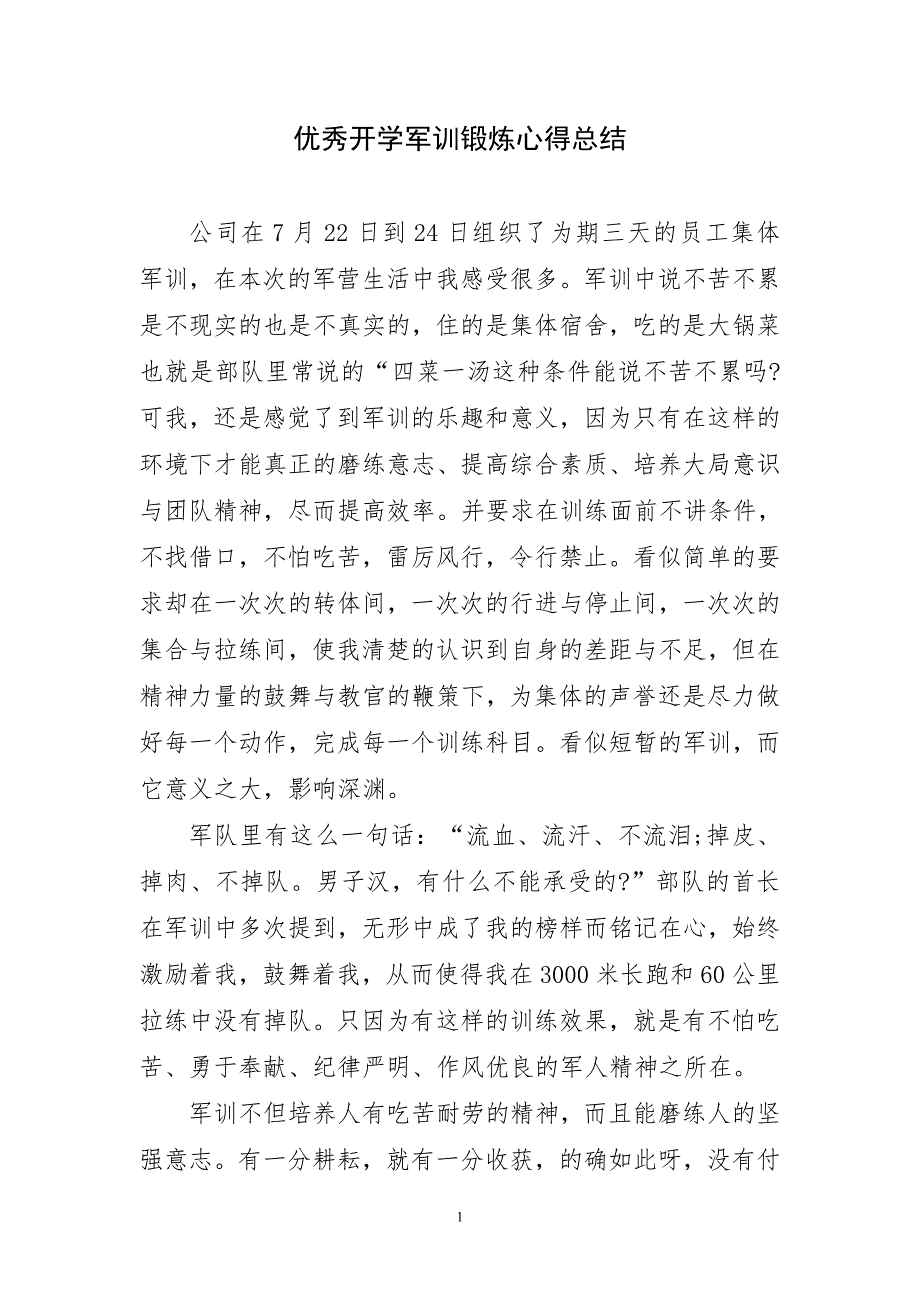 优秀开学军训锻炼心得总结
公司在 7 月 22 日到 24 日组织了为期三天的员工集体
军训，在本次的军营生活中我感受很多。军训中说不苦不累
是不现实的也是不真实的，住的是集体宿舍，吃的是大锅菜
也就是部队里常说的“四菜一汤这种条件能说不苦不累吗?
可我，还是感觉了到军训的乐趣和意义，因为只有在这样的
环境下才能真正的磨练意志、提高综合素质、培养大局意识
与团队精神，尽而提高效率。并要求在训练面前不讲条件，
不找借口，不怕吃苦，雷厉风行，令行禁止。看似简单的要
求却在一次次的转体间，一次次的行进与停止间，一次次的
集合与拉练间，使我清楚的认识到自身的差距与不足，但在
精神力量的鼓舞与教官的鞭策下，为集体的声誉还是尽力做
好每一个动作，完成每一个训练科目。看似短暂的军训，而
它意义之大，影响深渊。
军队里有这么一句话：“流血、流汗、不流泪;掉皮、
掉肉、不掉队。男子汉，有什么不能承受的?”部队的首长
在军训中多次提到，无形中成了我的榜样而铭记在心，始终
激励着我，鼓舞着我，从而使得我在 3000 米长跑和 60 公里
拉练中没有掉队。只因为有这样的训练效果，就是有不怕吃
苦、勇于奉献、纪律严明、作风优良的军人精神之所在。
军训不但培养人有吃苦耐劳的精神，而且能磨练人的坚
强意志。有一分耕耘，就有一分收获，的确如此呀，没有付
1